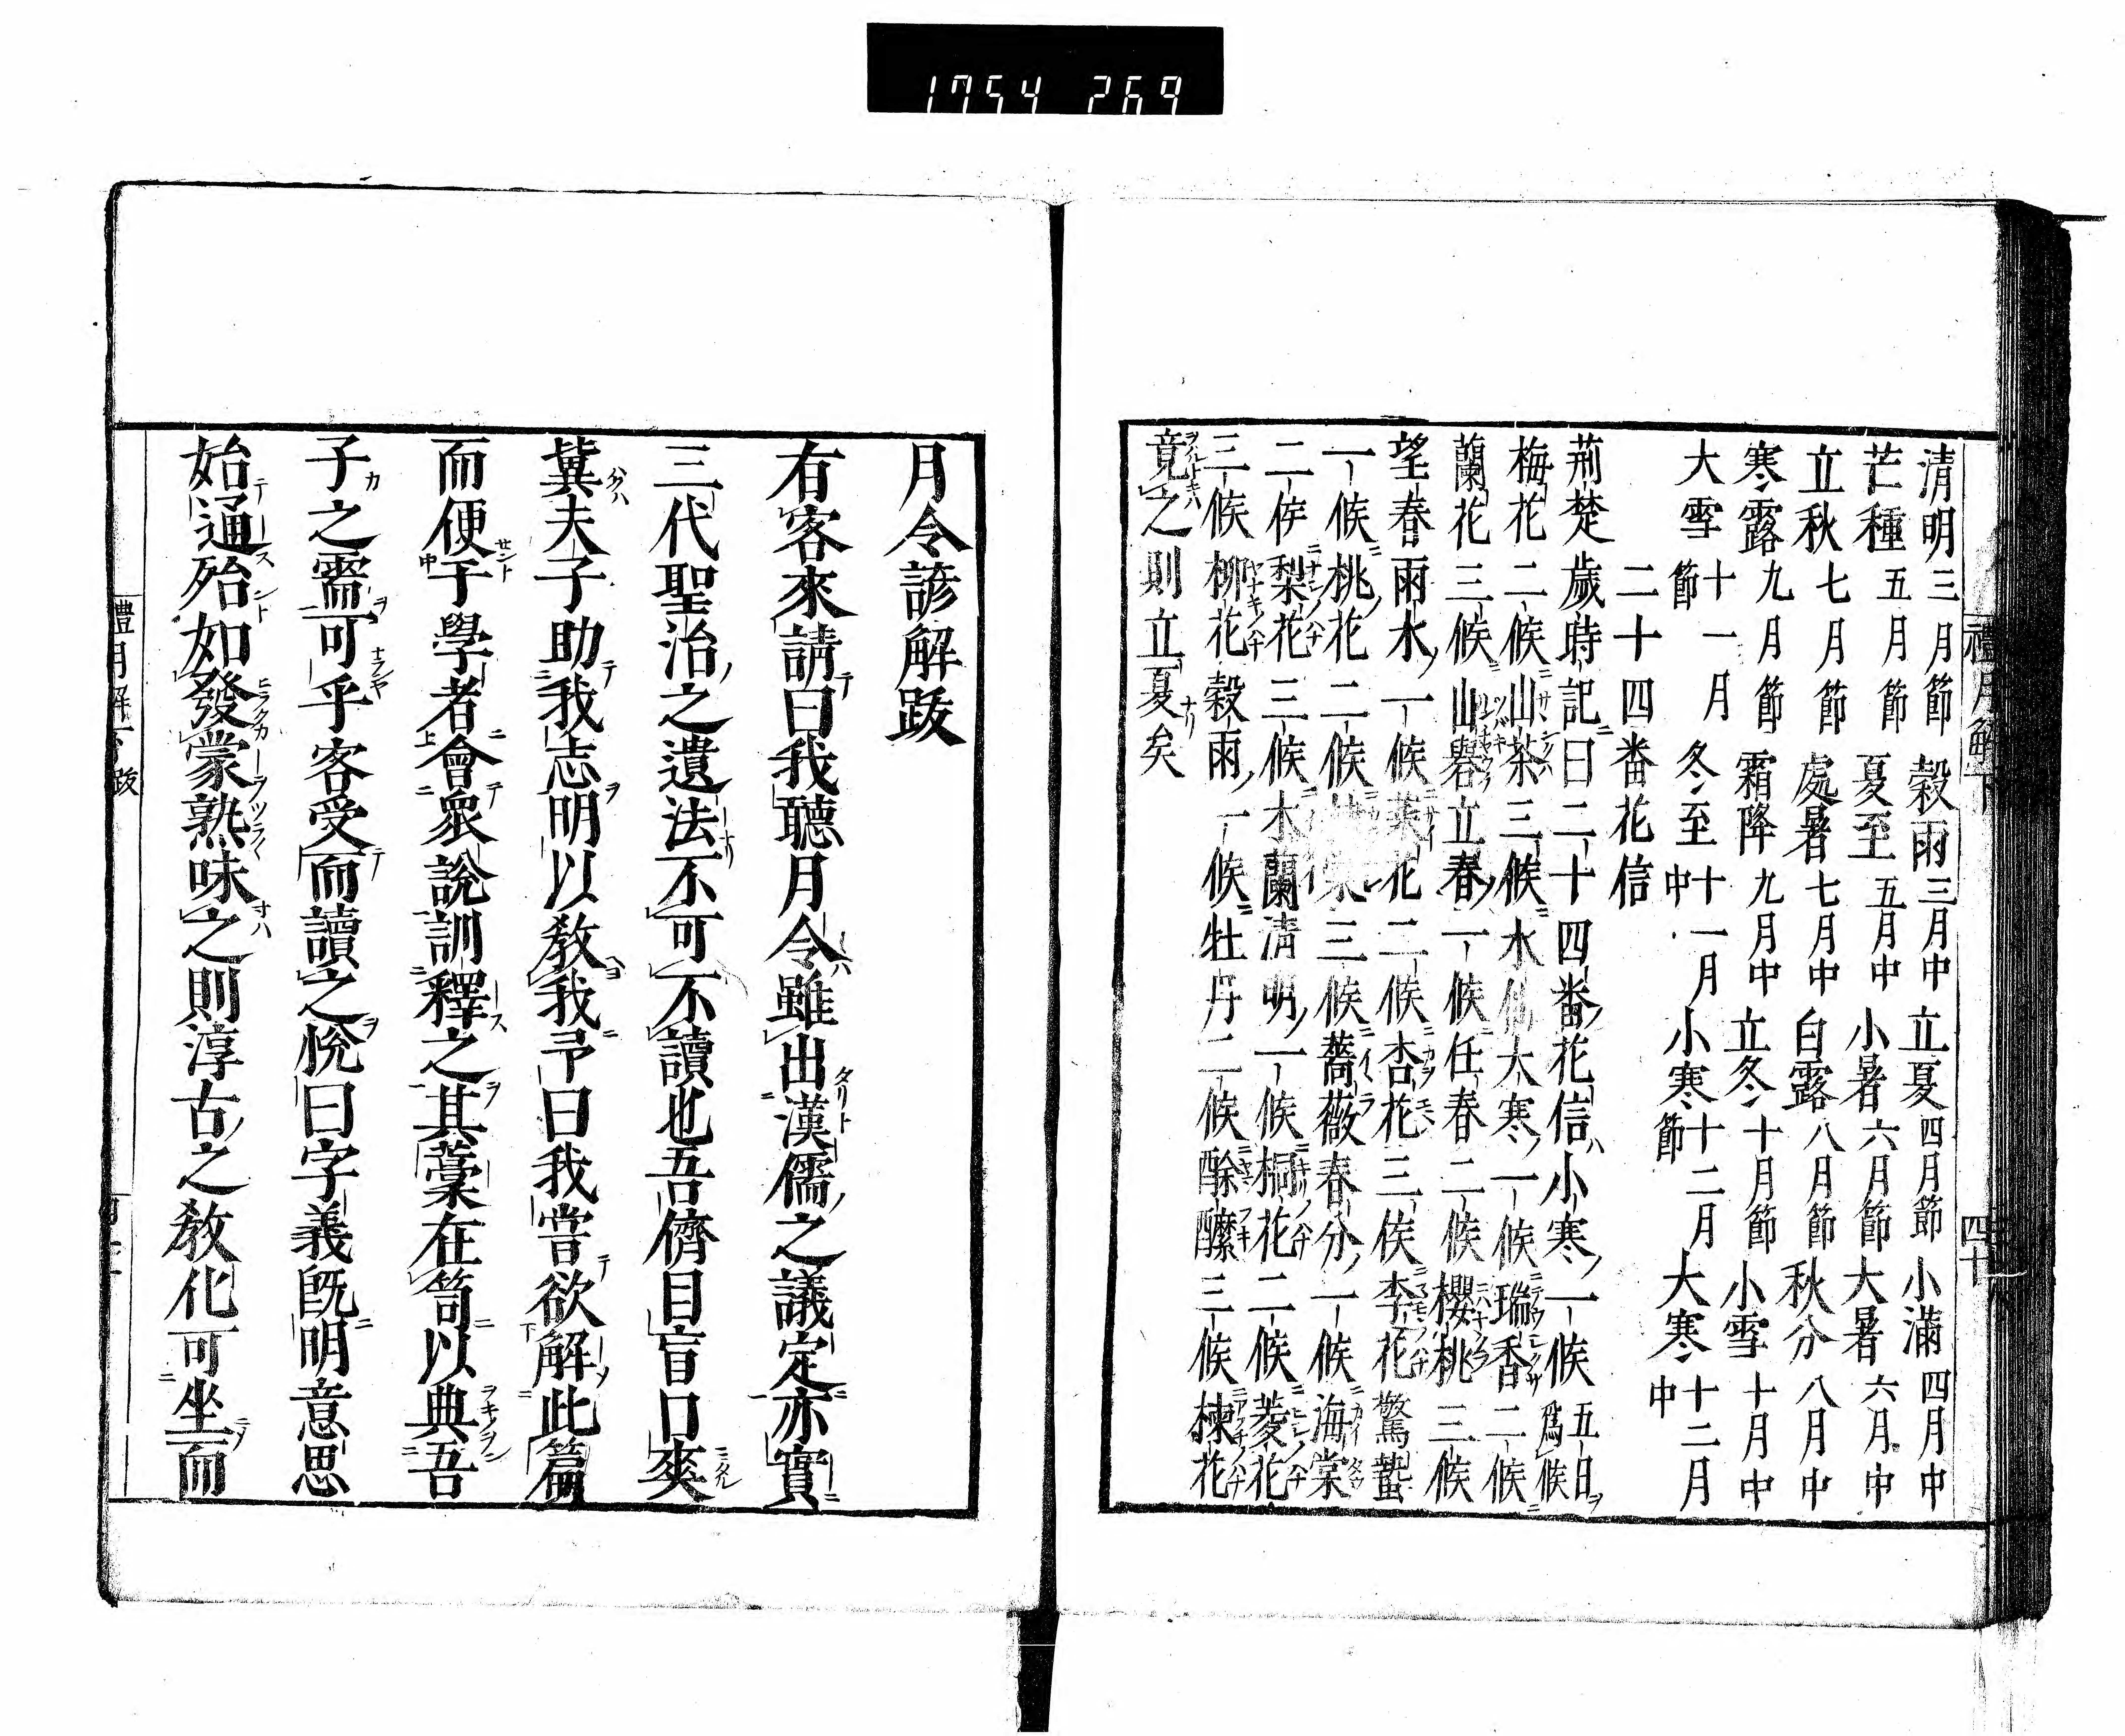 1754 269
清明三月節穀雨三月中立夏四月節小滿四月中
芒種五月節夏至五月中小暑六月節大暑六月中
立秋七月節處暑七月中白露八月節秋分八月中
寒露九月節霜降九月中立冬十月節小雪十月中
大雪十一月節冬至十一月中小寒十二月節大寒十二月中
二十四番花信
荊楚歲時記曰二十四番花信小寒一候五日爲候
梅花二候山茶三候水仙大寒一候瑞香二候
蘭花三候山礬立春一候任春二候櫻桃三候
望春雨水一候菜花二候杏花三候李花驚蟄
一候桃花二候三候薔薇春分一候海棠
二候梨花三候木蘭清明一候桐花二候菱花
三候柳花穀雨一候牡丹二候酴醾三候楝花
竟之則立夏矣
禮月解下
四十八
月令諺解跋
有客來請曰我聽月令雖出漢儒之議定亦實
三代聖治之遺法不可不讀也吾儕目盲口爽
冀夫子助我志明以教我予曰我嘗欲解此篇
而便于學者會衆說訓釋之其藁在笥以典吾
子之需可乎客受而讀之悅曰字義既明意思
始通殆如發蒙熟味之則淳古之教化可坐而
禮月解下跋